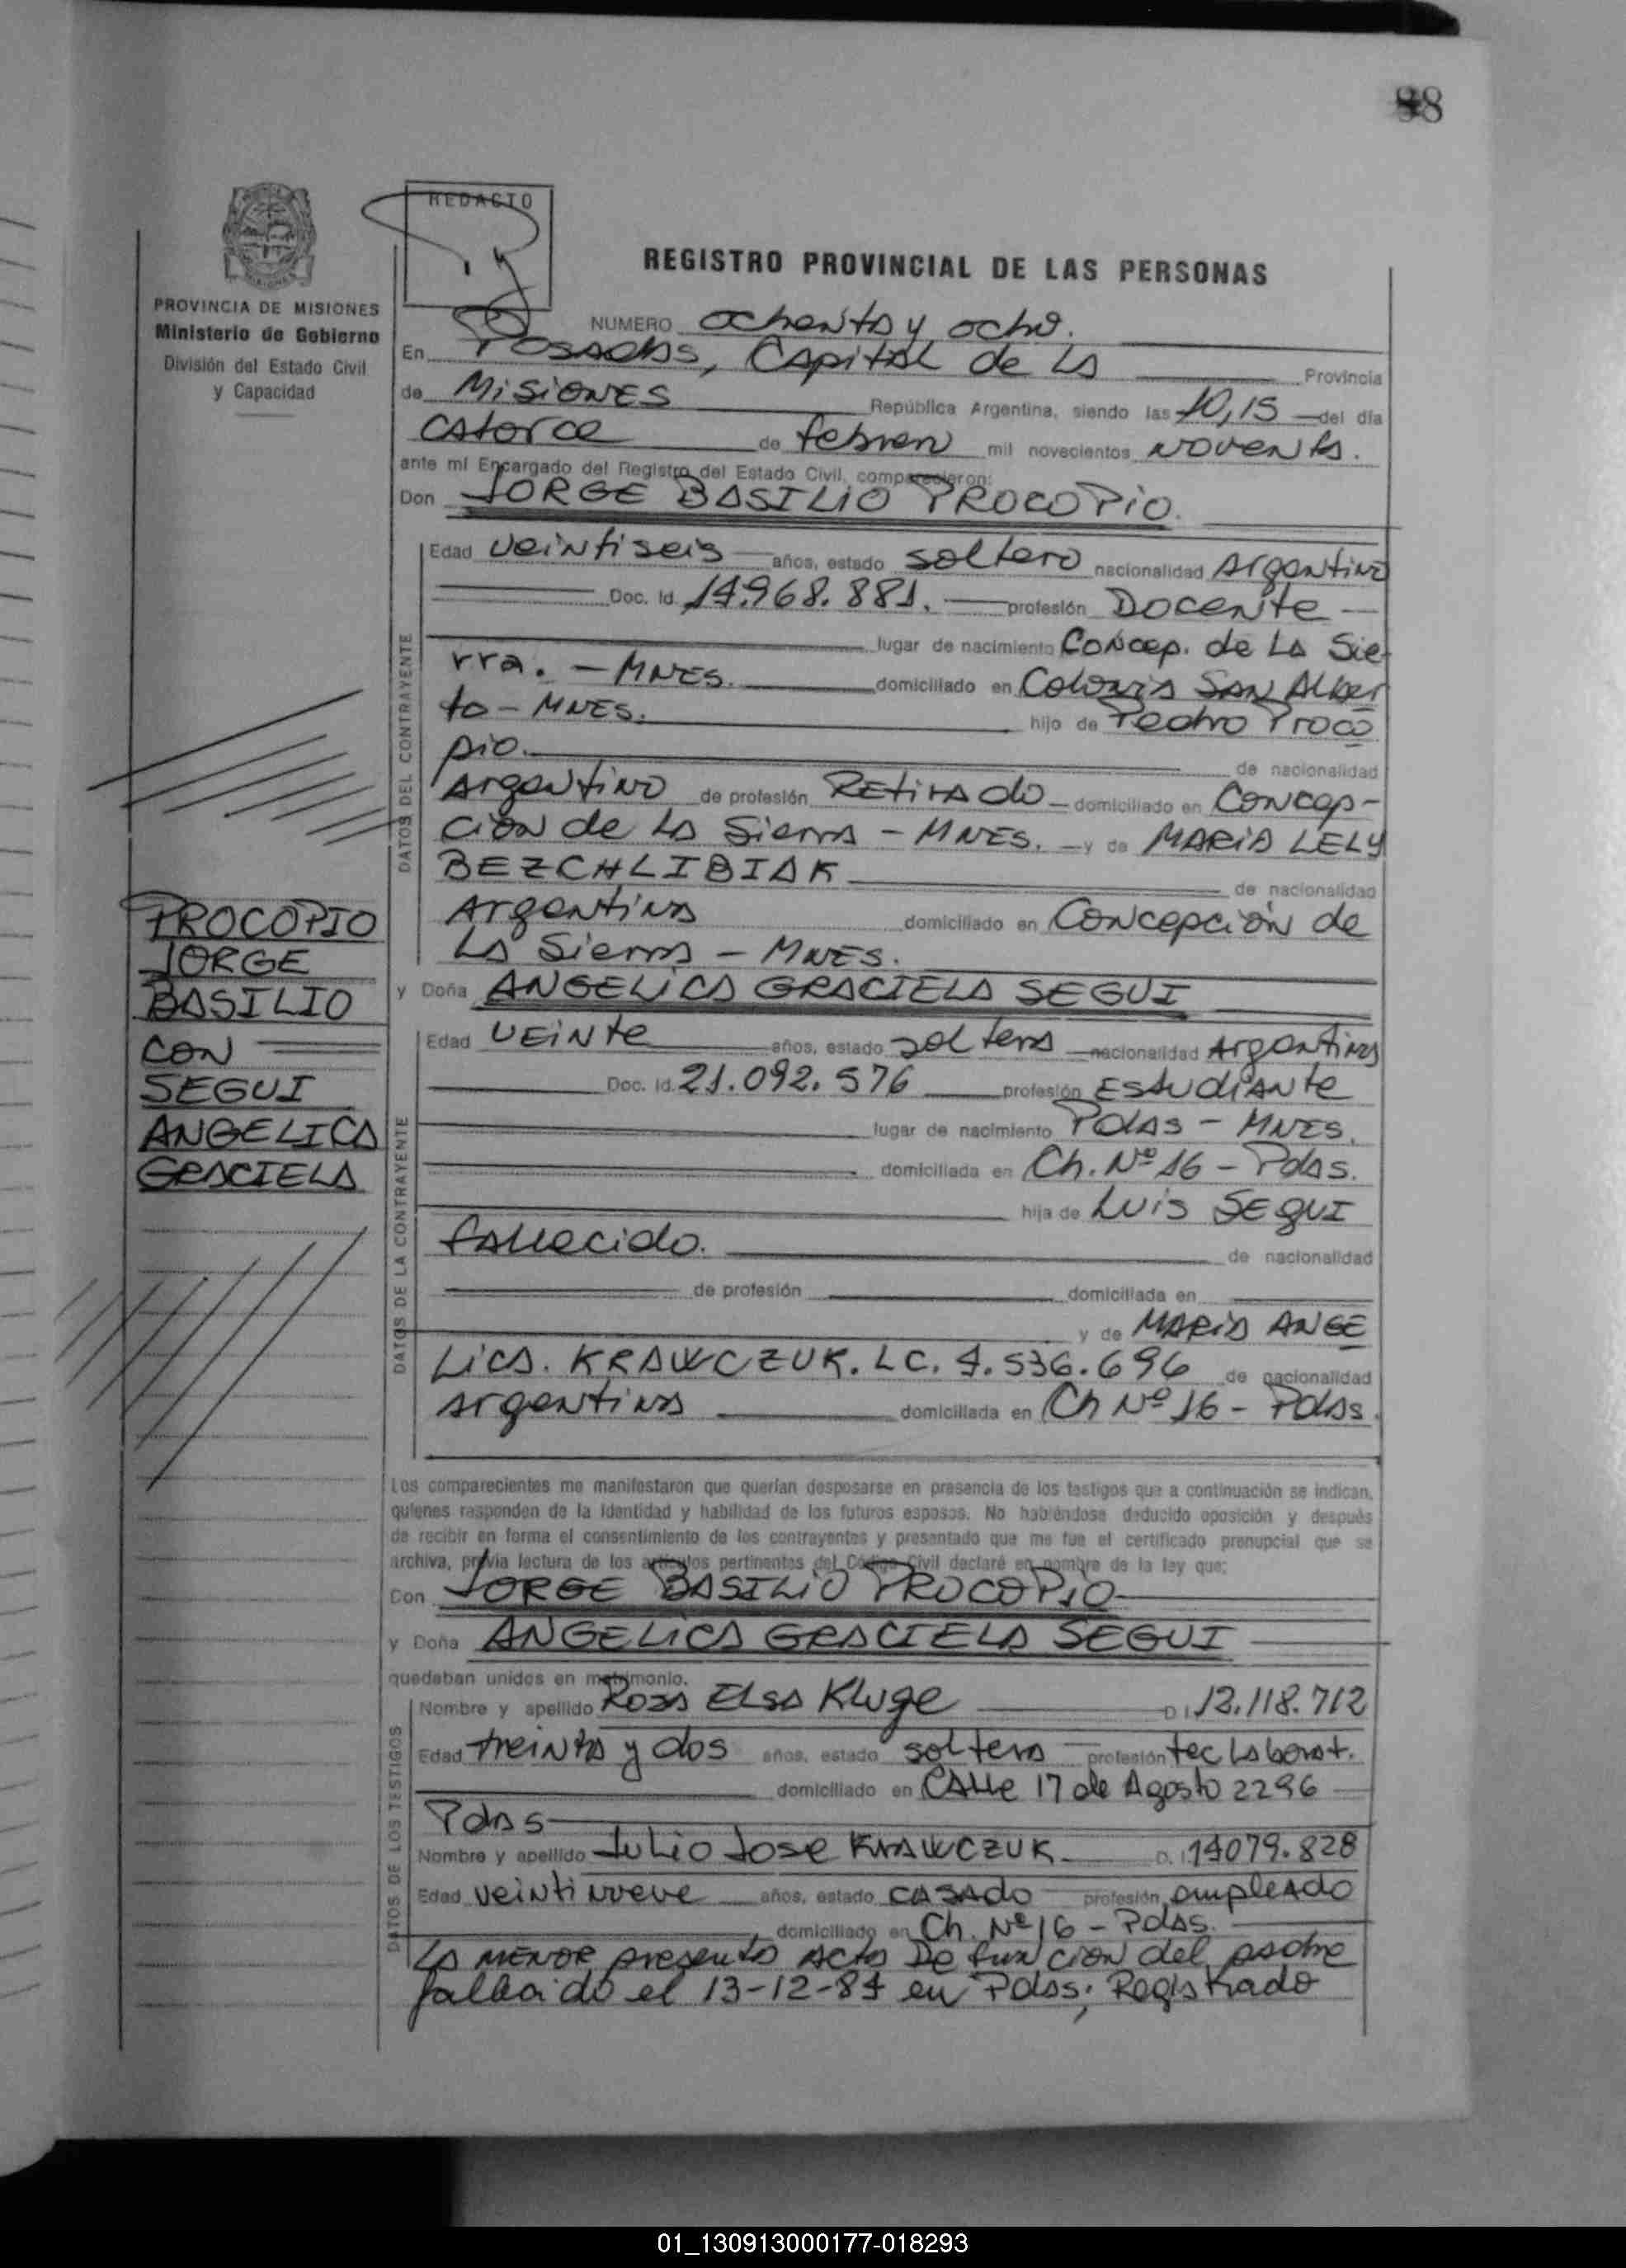 88
REDACTO
REGISTRO PROVINCIAL DE LAS PERSONAS
PROVINCIA DE MISIONES
Ministerio de Gobierno
División del Estado Civil
y Capacidad
NUMERO ochenta y ocho.
En Posadas, Capital de La Provincia
de Misiones República Argentina, siendo las 10,15 del día
catorce de febrero mil novecientos noventa.
ante mí Encargado del Registro del Estado Civil, comparecieron:
Don JORGE BASILIO PROCOPIO.
DATOS DEL CONTRAYENTE
Edad veintiseis años, estado soltero nacionalidad Argentino
Doc. Id. 14.968.881. profesión Docente
lugar de nacimiento Concep. de La Sie-
rra. - MNES. domiciliado en Colonia San Alber
to - MNES. hijo de Pedro Proco
pio. de nacionalidad
Argentino de profesión Retirado domiciliado en Concep-
ción de La Sierra - MNES. y de MARIA LELY
BEZCHLIBIAK de nacionalidad
Argentina domiciliado en Concepción de
La Sierra - MNES.
y Doña ANGELICA GRACIELA SEGUI
DATOS DE LA CONTRAYENTE
Edad Veinte años, estado soltera nacionalidad Argentina
Doc. Id. 21.092.576 profesión Estudiante
lugar de nacimiento Pdas - MNES.
domiciliada en Ch. Nº 16 - Pdas.
hija de Luis Segui
fallecido. de nacionalidad
de profesión domiciliada en
y de MARIA ANGE
Lica. KRAWCZUK. LC. 4.536.696 de nacionalidad
argentina domiciliada en Ch Nº 16 - Pdas.
Los comparecientes me manifestaron que querían desposarse en presencia de los testigos que a continuación se indican,
quienes responden de la identidad y habilidad de los futuros esposos. No habiéndose deducido oposición y después
de recibir en forma el consentimiento de los contrayentes y presentado que me fue el certificado prenupcial que se
archiva, previa lectura de los artículos pertinentes del Código Civil declaré en nombre de la ley que:
Don JORGE BASILIO PROCOPIO
y Doña ANGELICA GRACIELA SEGUI
quedaban unidos en matrimonio.
DATOS DE LOS TESTIGOS
Nombre y apellido Rosa Elsa Kluge D.I. 13.118.712
Edad treinta y dos años, estado soltera profesión tec Laborat.
domiciliado en Calle 17 de Agosto 2296
Pdas
Nombre y apellido Julio Jose KRAWCZUK D.I. 14079.828
Edad veintinueve años, estado CASADO profesión empleado
domiciliado en Ch. Nº 16 - Pdas.
La menor presento Acta Defuncion del padre
fallecido el 13-12-84 en Pdas, Registrado
PROCOPIO
JORGE
BASILIO
CON
SEGUI
ANGELICA
GRACIELA
01_130913000177-018293